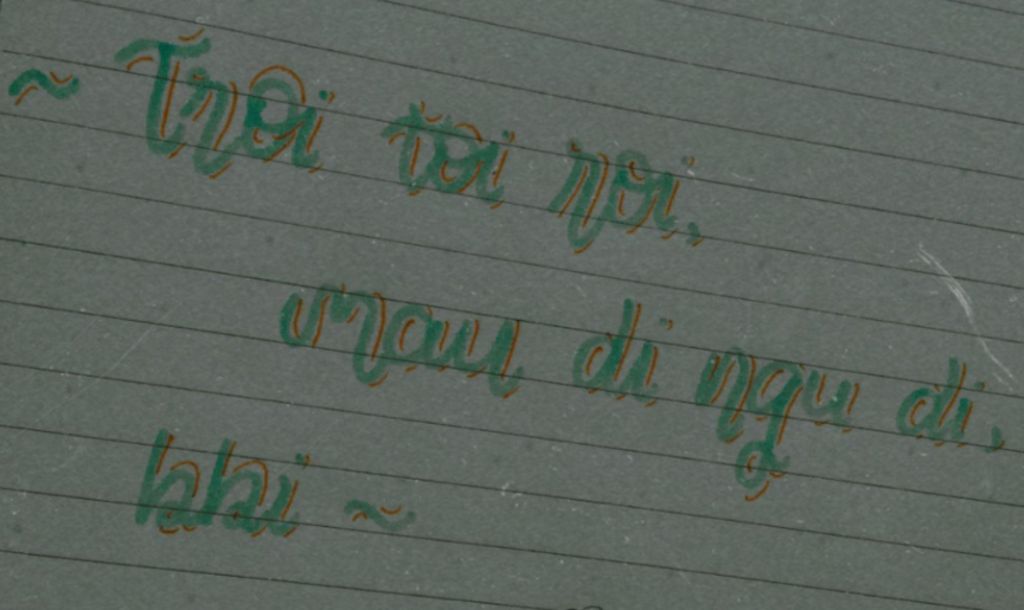 ~ Trời tối rồi,
mau đi ngu đi,
hhi ~